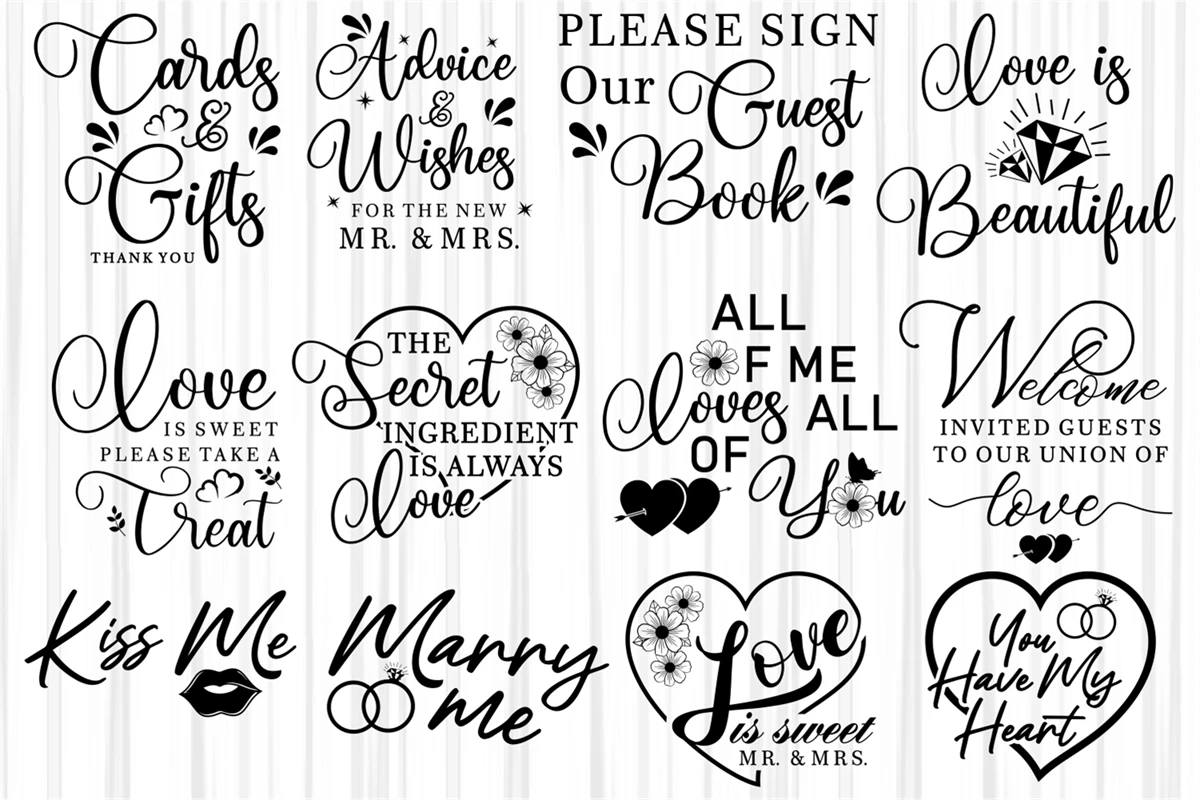 Cards
&
Gifts
THANK YOU
Advice
&
Wishes
FOR THE NEW
MR. & MRS.
PLEASE SIGN
Our Guest
Book
Love is
Beautiful
Love
IS SWEET
PLEASE TAKE A
Treat
THE
Secret
INGREDIENT
IS ALWAYS
Love
ALL
OF ME
Loves ALL
OF
You
Welcome
INVITED GUESTS
TO OUR UNION OF
love
Kiss Me
Marry
Me
Love
is sweet
MR. & MRS.
You
Have My
Heart